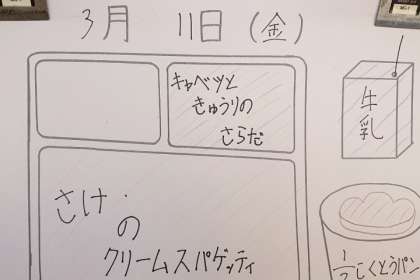 3月 11日(金)
キャベツと
きゅうりの
さらだ
牛
乳
さけ
の
クリームスパゲッティ
1/2こくとうパン